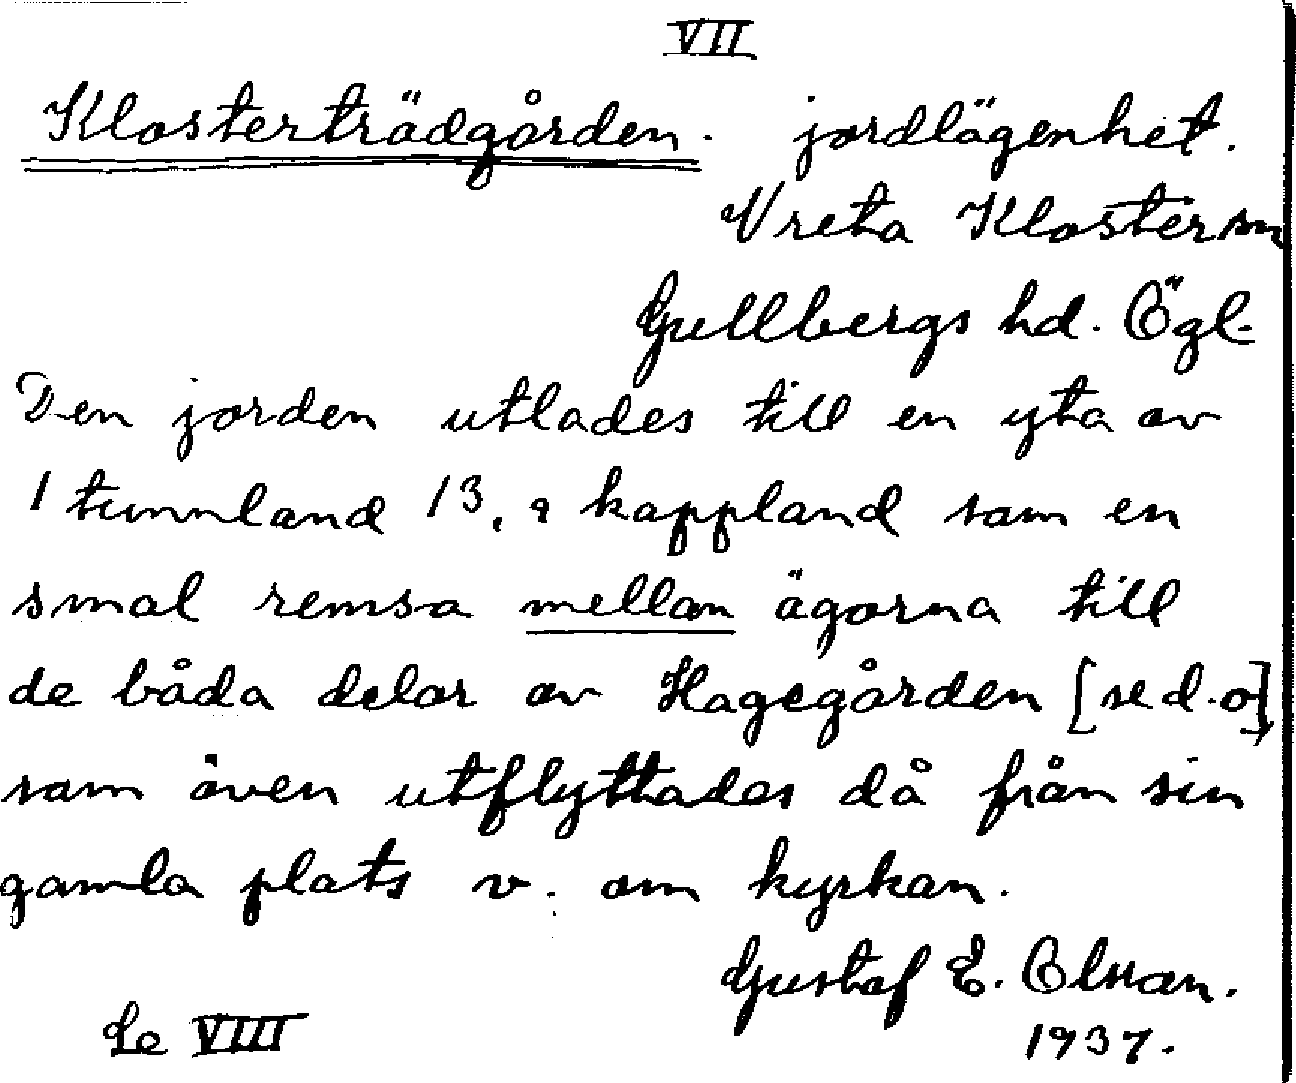 VII
Klosterträdgården. jordlägenhet.
Vreta Kloster sn
Gullbergs hd. Ögl.
Den jorden utlades till en yta av
1 tunnland 13,9 kappland som en
smal remsa mellan ägorna till
de båda delar av Hagegården [se d.o]
som även utflyttades då från sin
gamla plats v. om kyrkan.
Gustaf E. Olsson.
Se VIII 1937.